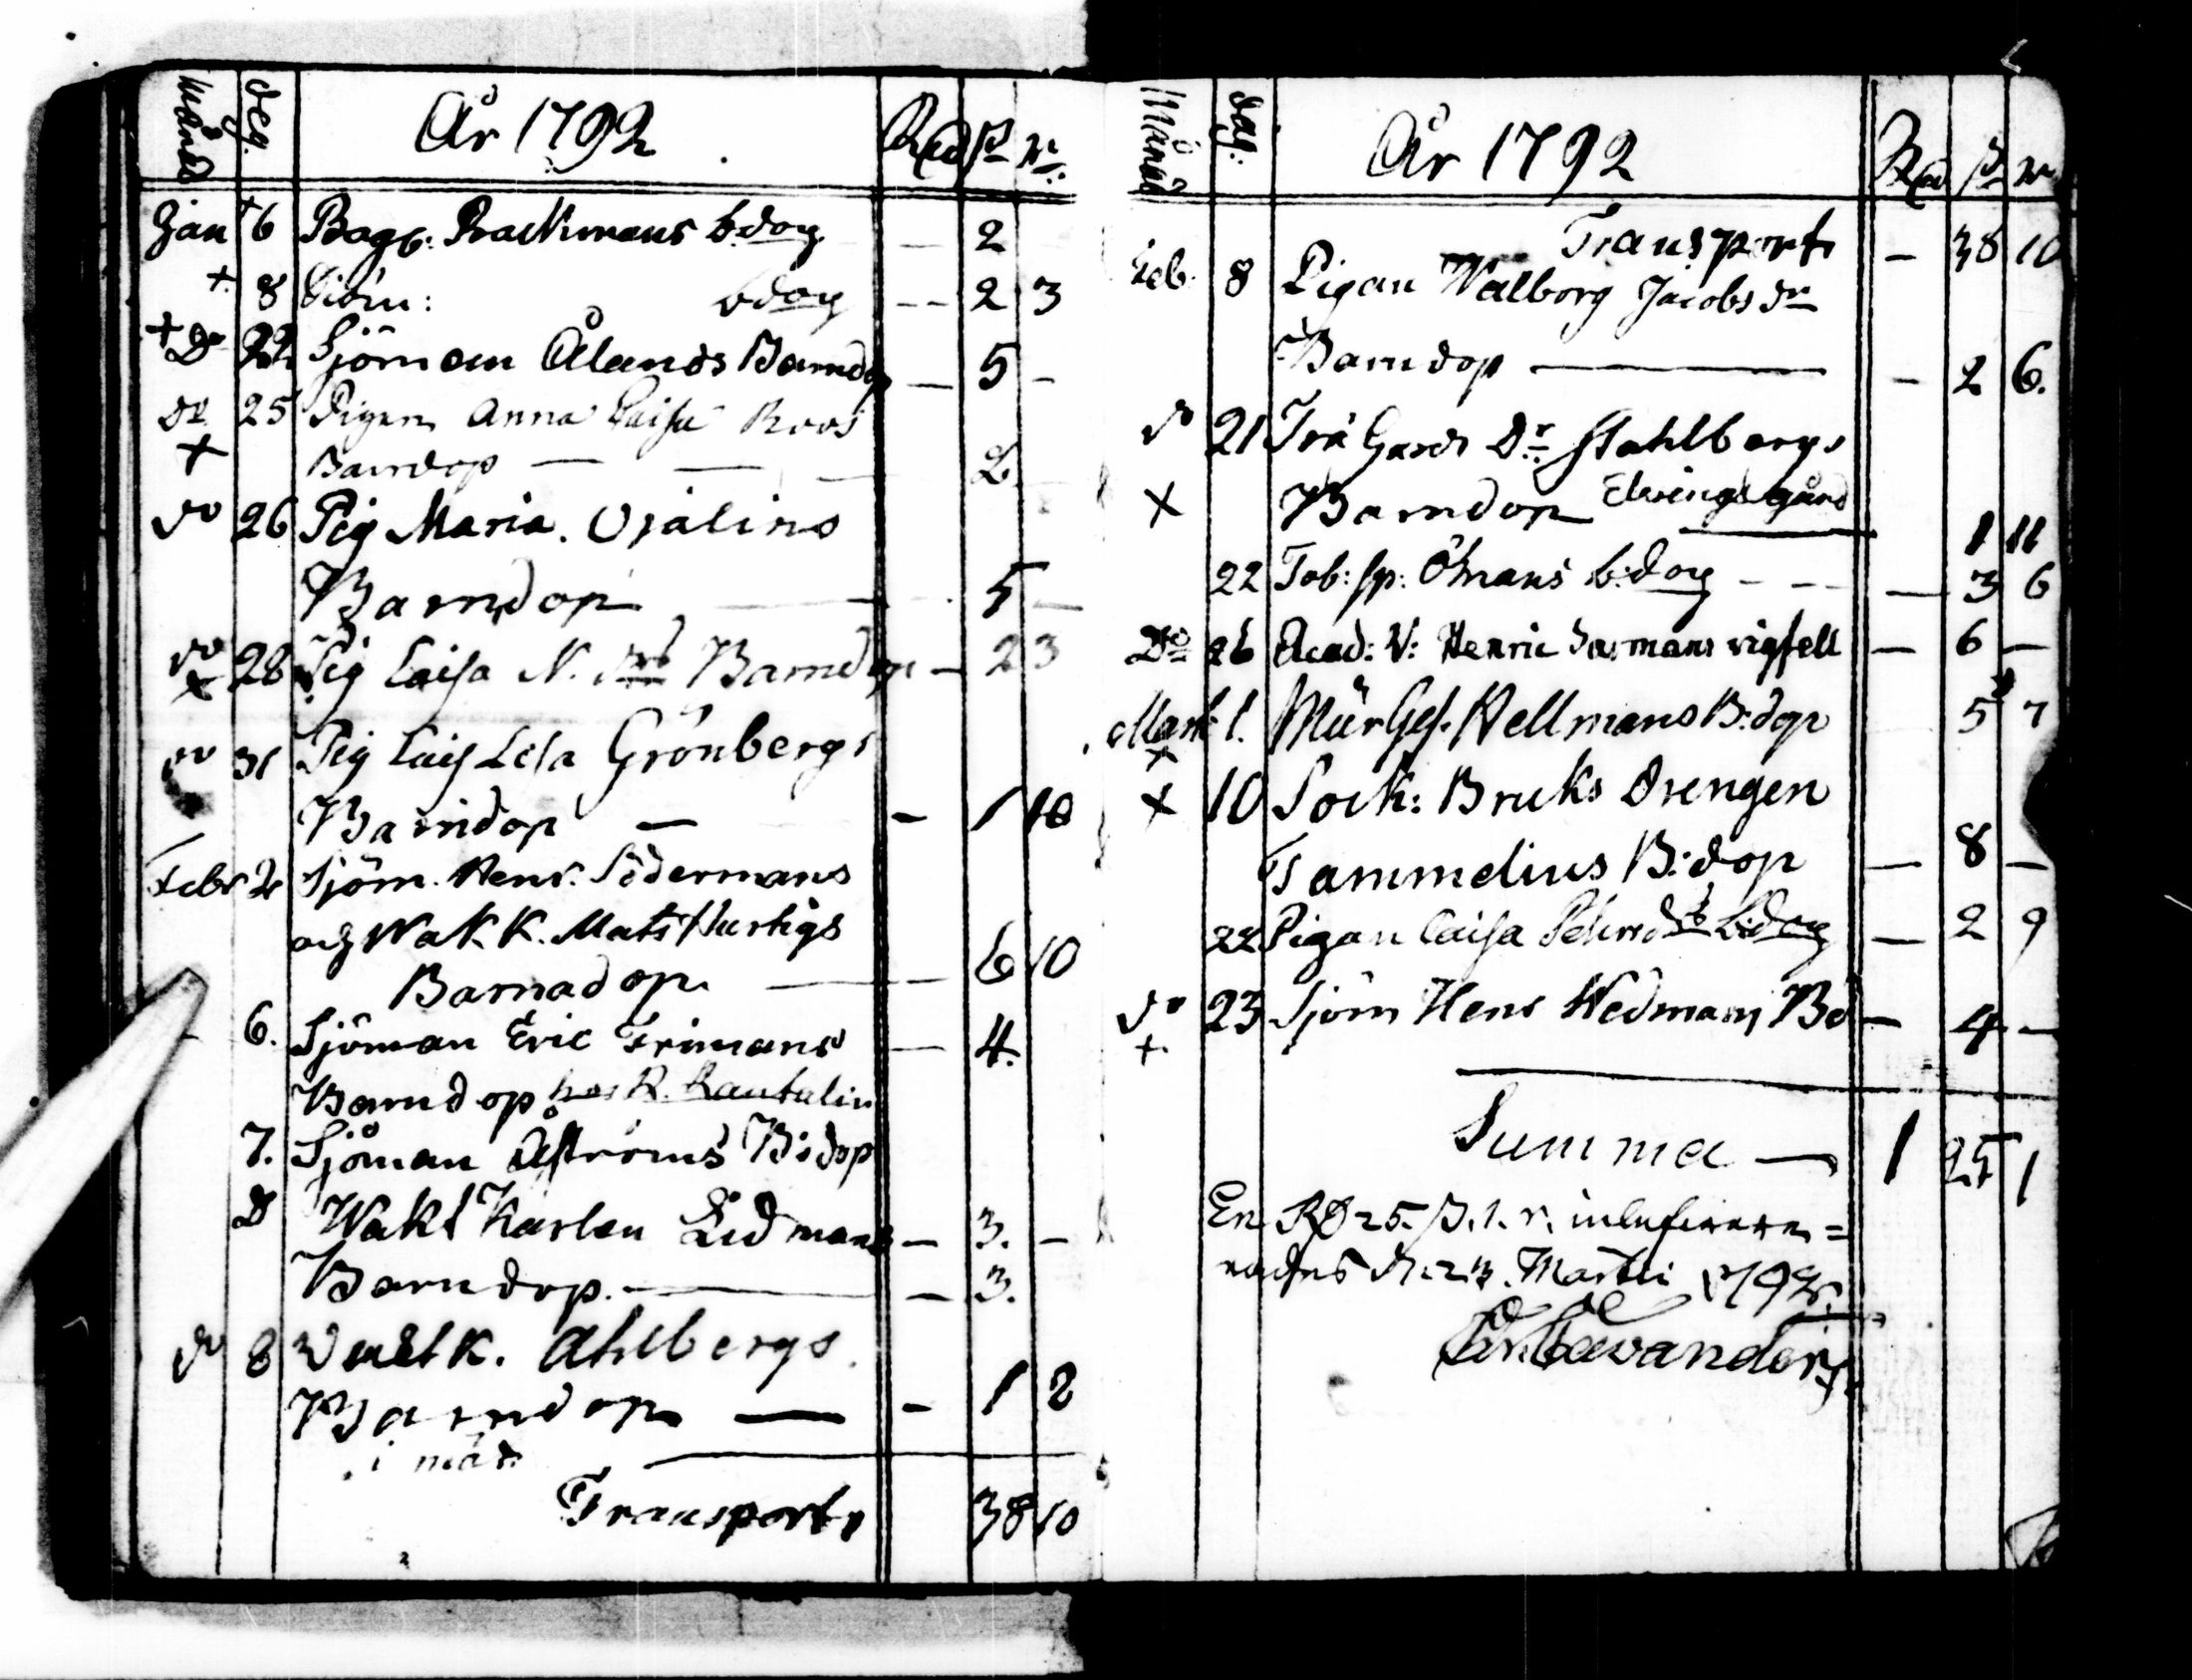 Månad dag. År 1792 Rd ß r:
Jan 6 Bagg: Backmans bdop — 2
+ 8 Sjöm: bdop — 2 3
+ Do 22 Sjöman Ålands Barndop — 5 —
Do 25 Pigan Anna Caisa Roos
+ Barndop — — — 2
do 26 Pig Maria Ojalins
Barndop — 5 —
do 28 Pig Caisa N. Barndop — 2 3
+
do 31 Pig Cais Lisa Grönbergs
Barndop — — 1 10
Febr 2 Sjöm. Henr. Södermans
och Wak. K. Mats Hurtigs
Barnadop. — — 6 10
6. Sjöman Eric Frimans — 4.
Barndop hos R. Rautalin
7. Sjöman Åströms B:dop
D Wakt Karlen Lidmans — 3. —
Barndop. — — 3.
do 8 Wackt K. Ahlbergs.
Barndop — — 1 2
Transport 38 10
Månad dag: År 1792 Rd ß r
Transport — 38 10
Feb. 8 Pigan Walborg Jacobs dr
Barndop — — 2 6.
do 21 Trä Gards Dr. Stahlbergs
+ Barndop Elwings gård 1 11
22 Tob: sp: Öhmans b:dop — — 3 6
Do 26 Acad: V: Henric vigsell — 6 —
Mart 1. Mür Ges. Hellmans B:dop 5 7
+
+ 10 Sock: Bruks Drengen
Tammelius B:dop — 8 —
22 Pigan Caisa b:dop — 2 9
do 23 Sjöm Henr Wedmans Bd — 4 —
+
Summa — 1 25 1
En RD 25. ß. 1. r.
Martii 1792.